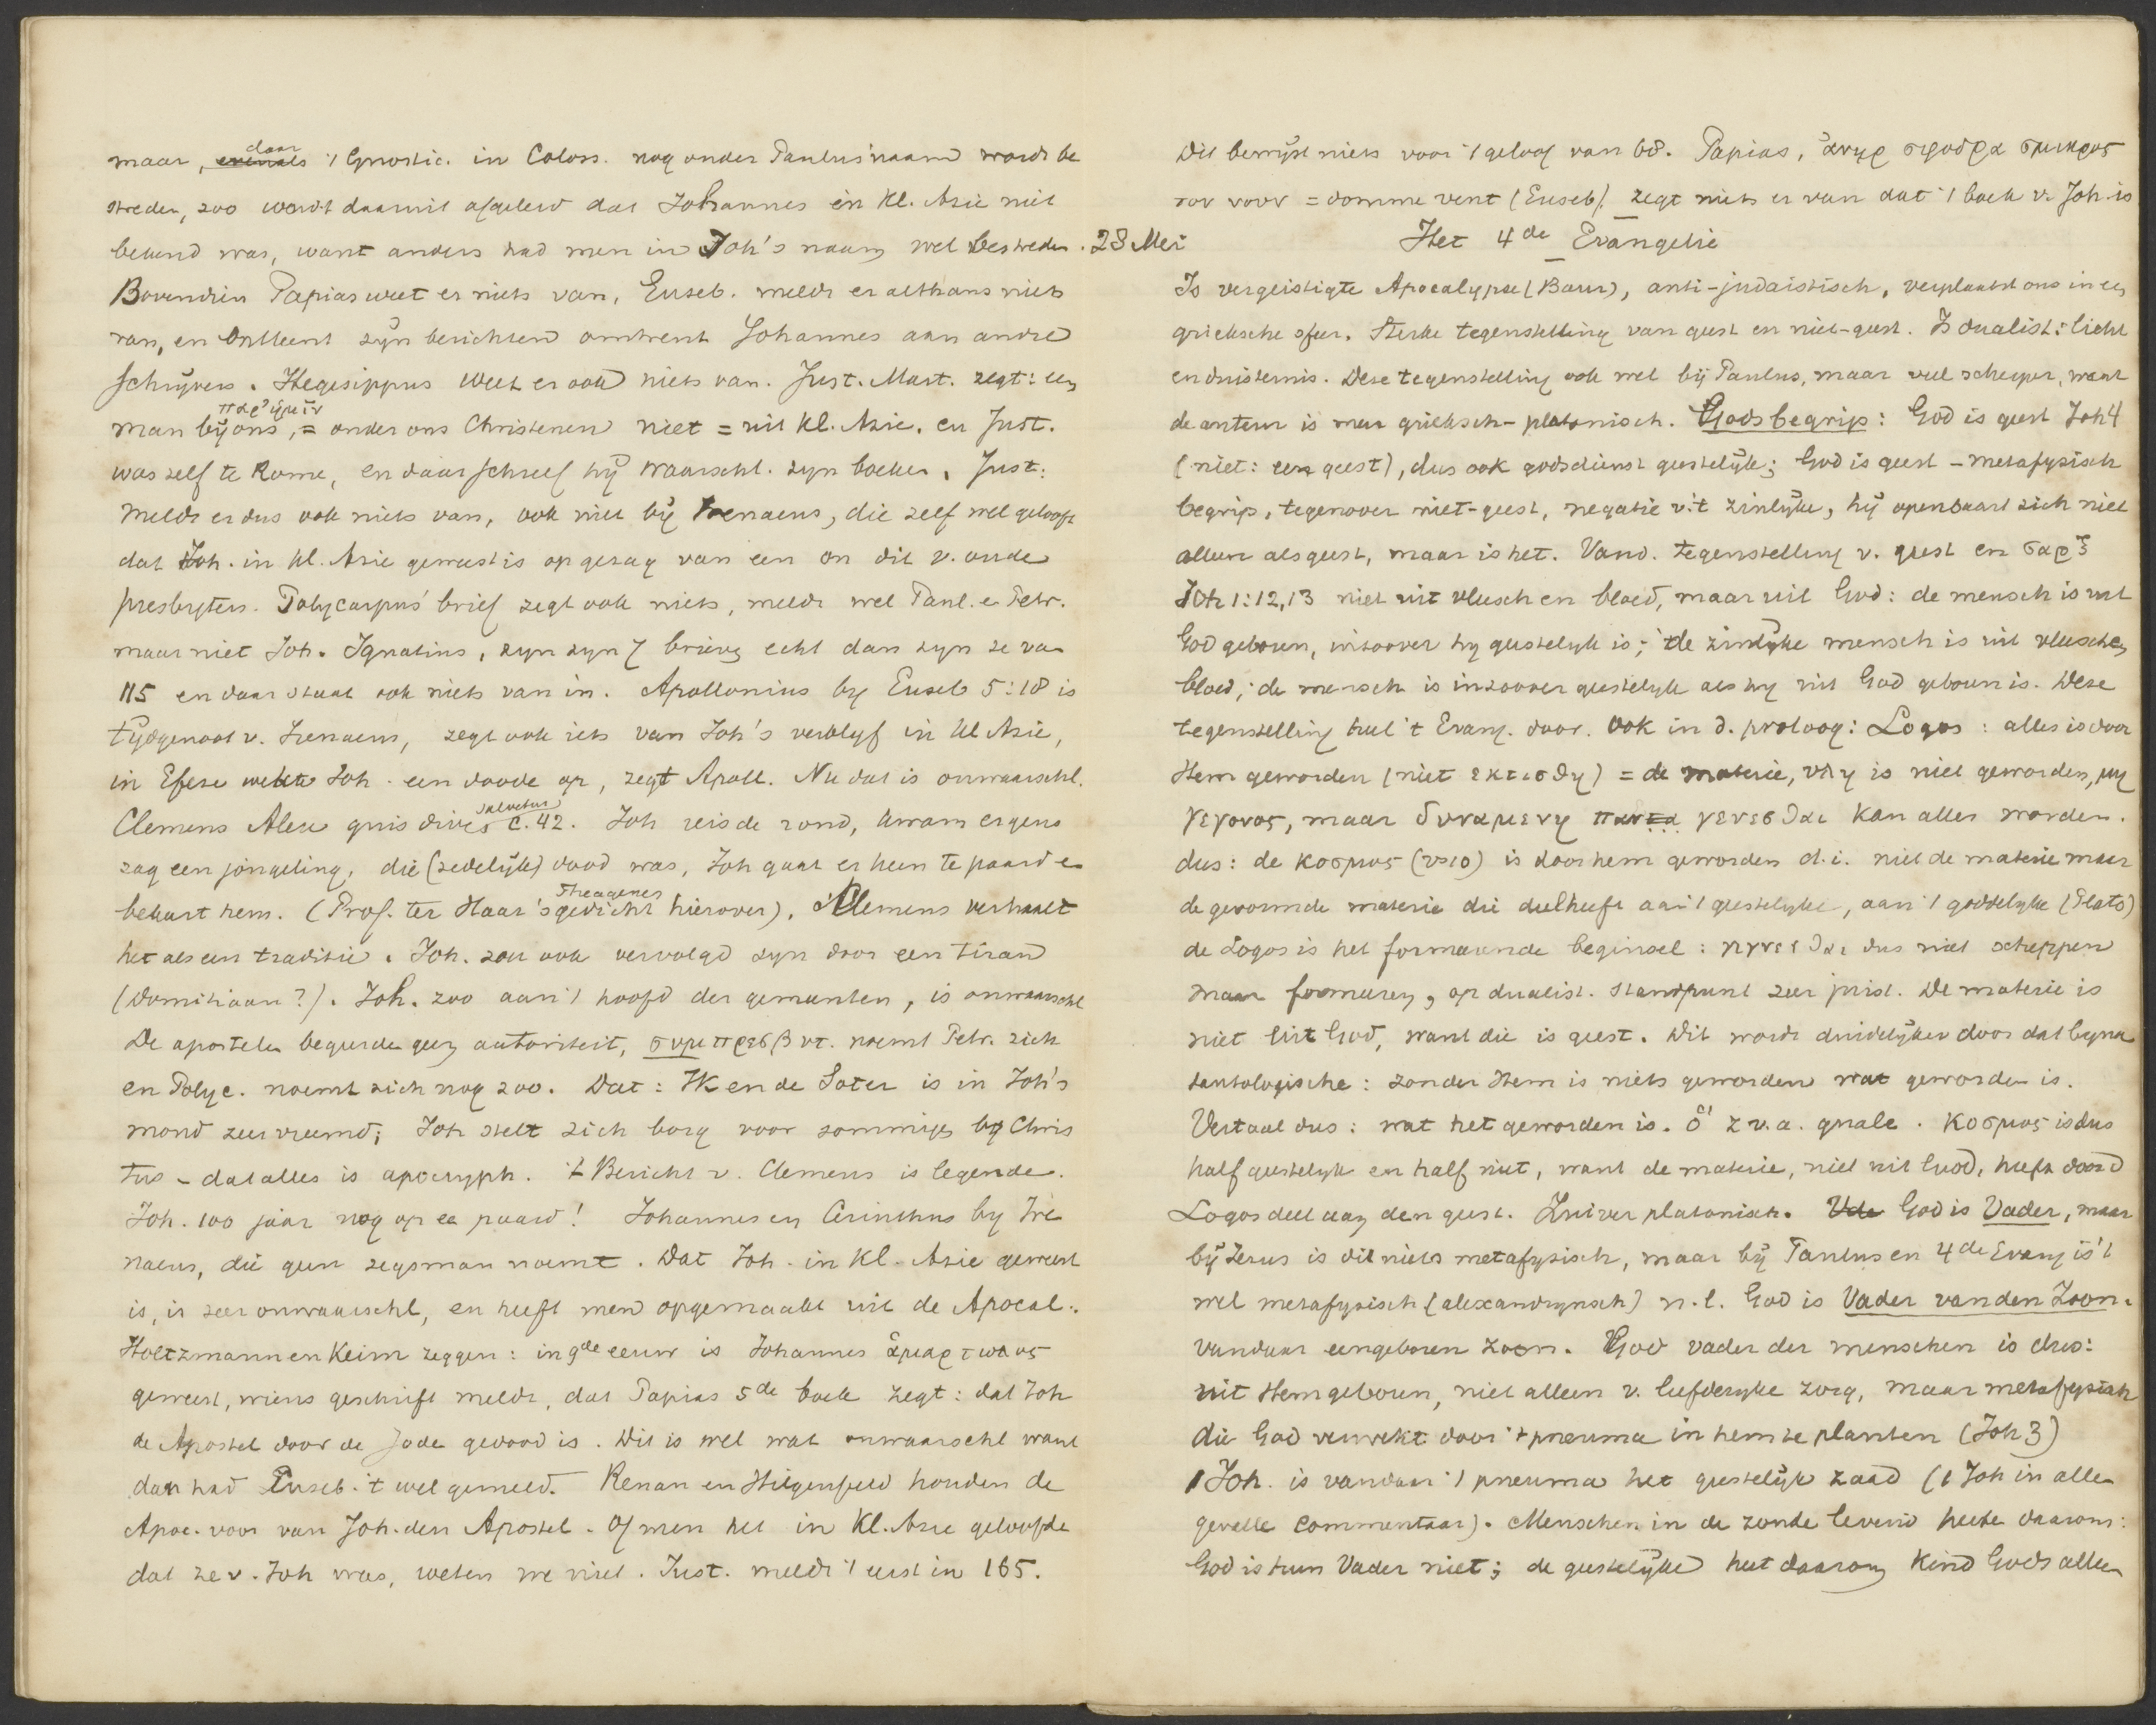 maar, daar evenals 't Gnostic. in Coloss. nog onder Paulus' naam wordt be
streden, zoo wordt daaruit afgeleid dat Johannes in Kl. Azie niet
bekend was, want anders had men in Joh's naam wel bestreden. 28 Mei
Bovendien Papias weet er niets van, Euseb. meldt er althans niets
van, en ontleent zyn berichten omtrent Johannes aan andre
schrijvers. Hegesippus weet er ook niets van. Just. Mart. zegt: een
παρ' ἡμῖν
man bij ons, = onder ons Christenen niet = uit Kl. Azie, en Just.
was zelf te Rome, en daar schreef hij waarschl. zyn boeken. Just:
meldt er dus ook niets van, ook niet bij Irenaeus, die zelf wel gelooft
dat Joh. in Kl. Azie geweest is op gezag van een on dit v. oude
presbyters. Polycarpus' brief zegt ook niets, meldt wel Paul. e Petr.
maar niet Joh. Ignatius, zyn zyn 7 brieven echt dan zyn ze van
115 en daar staat ook niets van in. Apollonius by Euseb 5:18 is
tijdgenoot v. Irenaeus, zegt ook iets van Joh's verblyf in Kl Azie,
in Efese wekte Joh. een doode op, zegt Apoll. Nu dat is onwaarschl.
Clemens Alex quis dives salvetur c. 42. Joh reisde rond, kwam ergens
zag een jongeling, die (zedelijk) dood was, Joh gaat er heen te paard e
bekeert hem. (Prof. ter Haar's Theagenes gedicht hierover). Clemens verhaalt
het als een traditie. Joh. zou ook vervolgd zyn door een tiran
(Domitiaan?). Joh. zoo aan 't hoofd der gemeenten, is onwaarschl
De apostelen begeerden geen autoriteit, συμπρεσβυτ. noemt Petr. zich
en Polyc. noemt zich nog zoo. Dat: Ik en de Soter is in Joh's
mond zeer vreemd; Joh stelt zich borg voor sommiges by Chris
tus - dat alles is apocryph. 't Bericht v. Clemens is legende.
Joh. 100 jaar nog op ee paard! Johannes en Cerinthus by Ire
naeus, die geen zegsman noemt. Dat Joh. in Kl. Azie geweest
is, is zeer onwaarschl, en heeft men opgemaakt uit de Apocal.
Holtzmann en Keim zeggen: in 9de eeuw is Johannes ἁμαρτωλος
geweest, wiens geschrift meldt, dat Papias 5de boek zegt: dat Joh
de Apostel door de Joden gedood is. Dit is wel wat onwaarschl want
dan had Euseb. 't wel gemeld. Renan en Hilgenfeld houden de
Apoc. voor van Joh. den Apostel. Of men het in Kl. Azie geloofde
dat ze v. Joh was, weten we niet. Just. meldt 't eerst in 165.
Dit bewijst niets voor 't geloof van 68. Papias, ἀνηρ σφοδρα σμικρος
τον νουν = domme vent (Euseb). zegt niets er van dat 't boek v. Joh is
Het 4de Evangelie
Is vergeistigte Apocalypse (Baur), anti-judaistisch, verplaatst ons in een
grieksche sfeer. Sterke tegenstelling van geest en niet-geest. Is dualist: licht
en duisternis. Deze tegenstelling ook wel bij Paulus, maar veel scherper, want
de auteur is meer grieksch-platonisch. Godsbegrip: God is geest Joh 4
(niet: een geest), dus ook godsdienst geestelijk; God is geest - metafysisch
begrip, tegenover niet-geest, negatie v. 't zinlijke, hij openbaart zich niet
alleen als geest, maar is het. Vand. tegenstelling v. geest en σαρξ
Joh 1:12,13 niet uit vleesch en bloed, maar uit God: de mensch is uit
God geboren, inzoover hy geestelyk is; de zinlyke mensch is uit vleesch en
bloed; de mensch is inzoover geestelyk als hy uit God geboren is. Deze
tegenstelling heel 't Evang. door. Ook in d. proloog: Logos: alles is door
Hem geworden (niet εκτισθη) = de materie, υλη is niet geworden, μη
γεγονος, maar δυναμενη παντα γενεσθαι kan alles worden.
dus: de κοσμος (vs 10) is door hem geworden d.i. niet de materie maar
de gevormde materie die deelheeft aan 't geestelyke, aan 't goddelyke (Plato)
de Logos is het formeerende beginsel: γιγνεσθαι dus niet scheppen
maar formeeren, op dualist. standpunt zeer juist. De materie is
niet uit God, want die is geest. Dit wordt duidelijker door dat byna
tautologische: zonder Hem is niets geworden wat geworden is.
Vertaal dus: wat het geworden is. ὃ z.v.a. quale. κοσμος is dus
half geestelyk en half niet, want de materie, niet uit God, heeft door d
Logos deel aan den geest. Zuiver platonisch. Vde God is Vader, maar
bij Jezus is dit niets metafysisch, maar bij Paulus en 4de Evang is 't
wel metafysisch (alexandrynsch) n.l. God is Vader van den Zoon.
vandaar eengeboren zoon. God vader der menschen is dus:
uit Hem geboren, niet alleen v. liefderyke zorg, maar metafysisch
die God verwekt door 't pneuma in hem te planten (Joh 3)
1 Joh. is vandaar 't pneuma het geestelyk zaad (1 Joh in allen
gevalle commentaar). Menschen in de zonde levend heete daarom:
God is hun Vader niet; de geestelijke heet daarom Kind Gods alleen